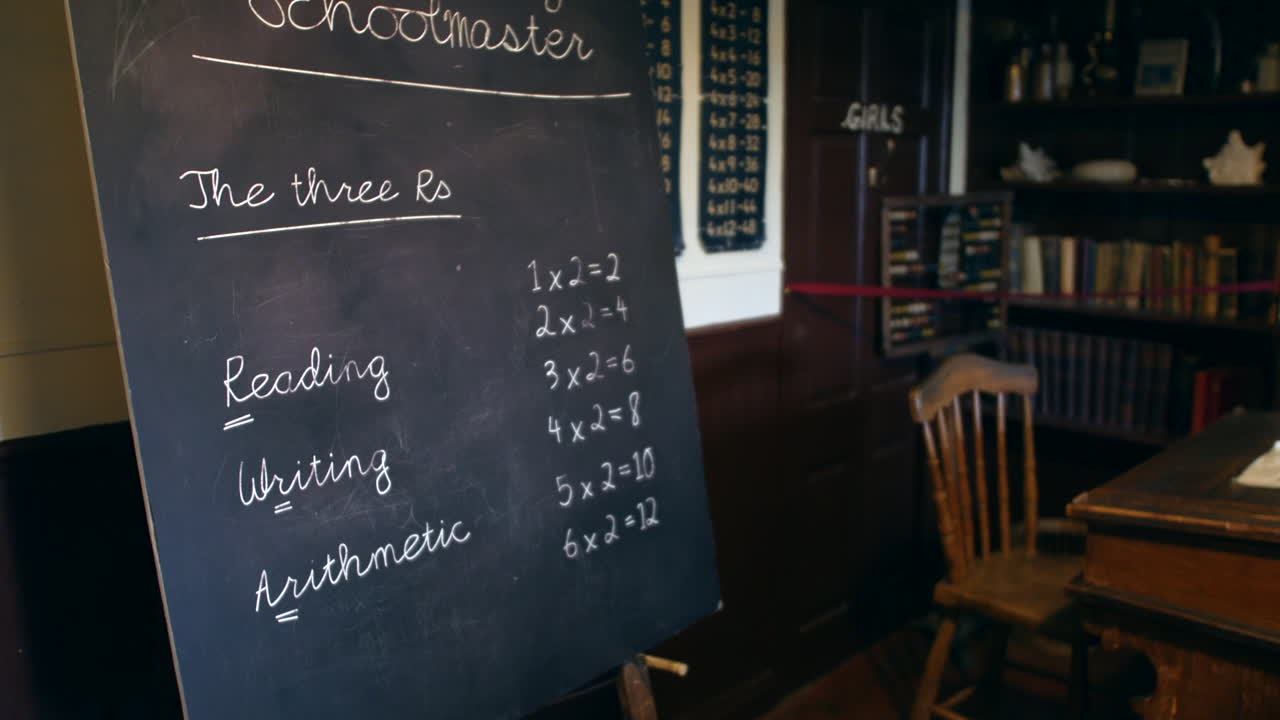 Schoolmaster
The three Rs
Reading
Writing
Arithmetic
1 x 2 = 2
2 x 2 = 4
3 x 2 = 6
4 x 2 = 8
5 x 2 = 10
6 x 2 = 12
4x2-8
4x3-12
4x4-16
4x5-20
4x6-24
4x7-28
4x8-32
4x9-36
4x10-40
4x11-44
4x12-48
GIRLS